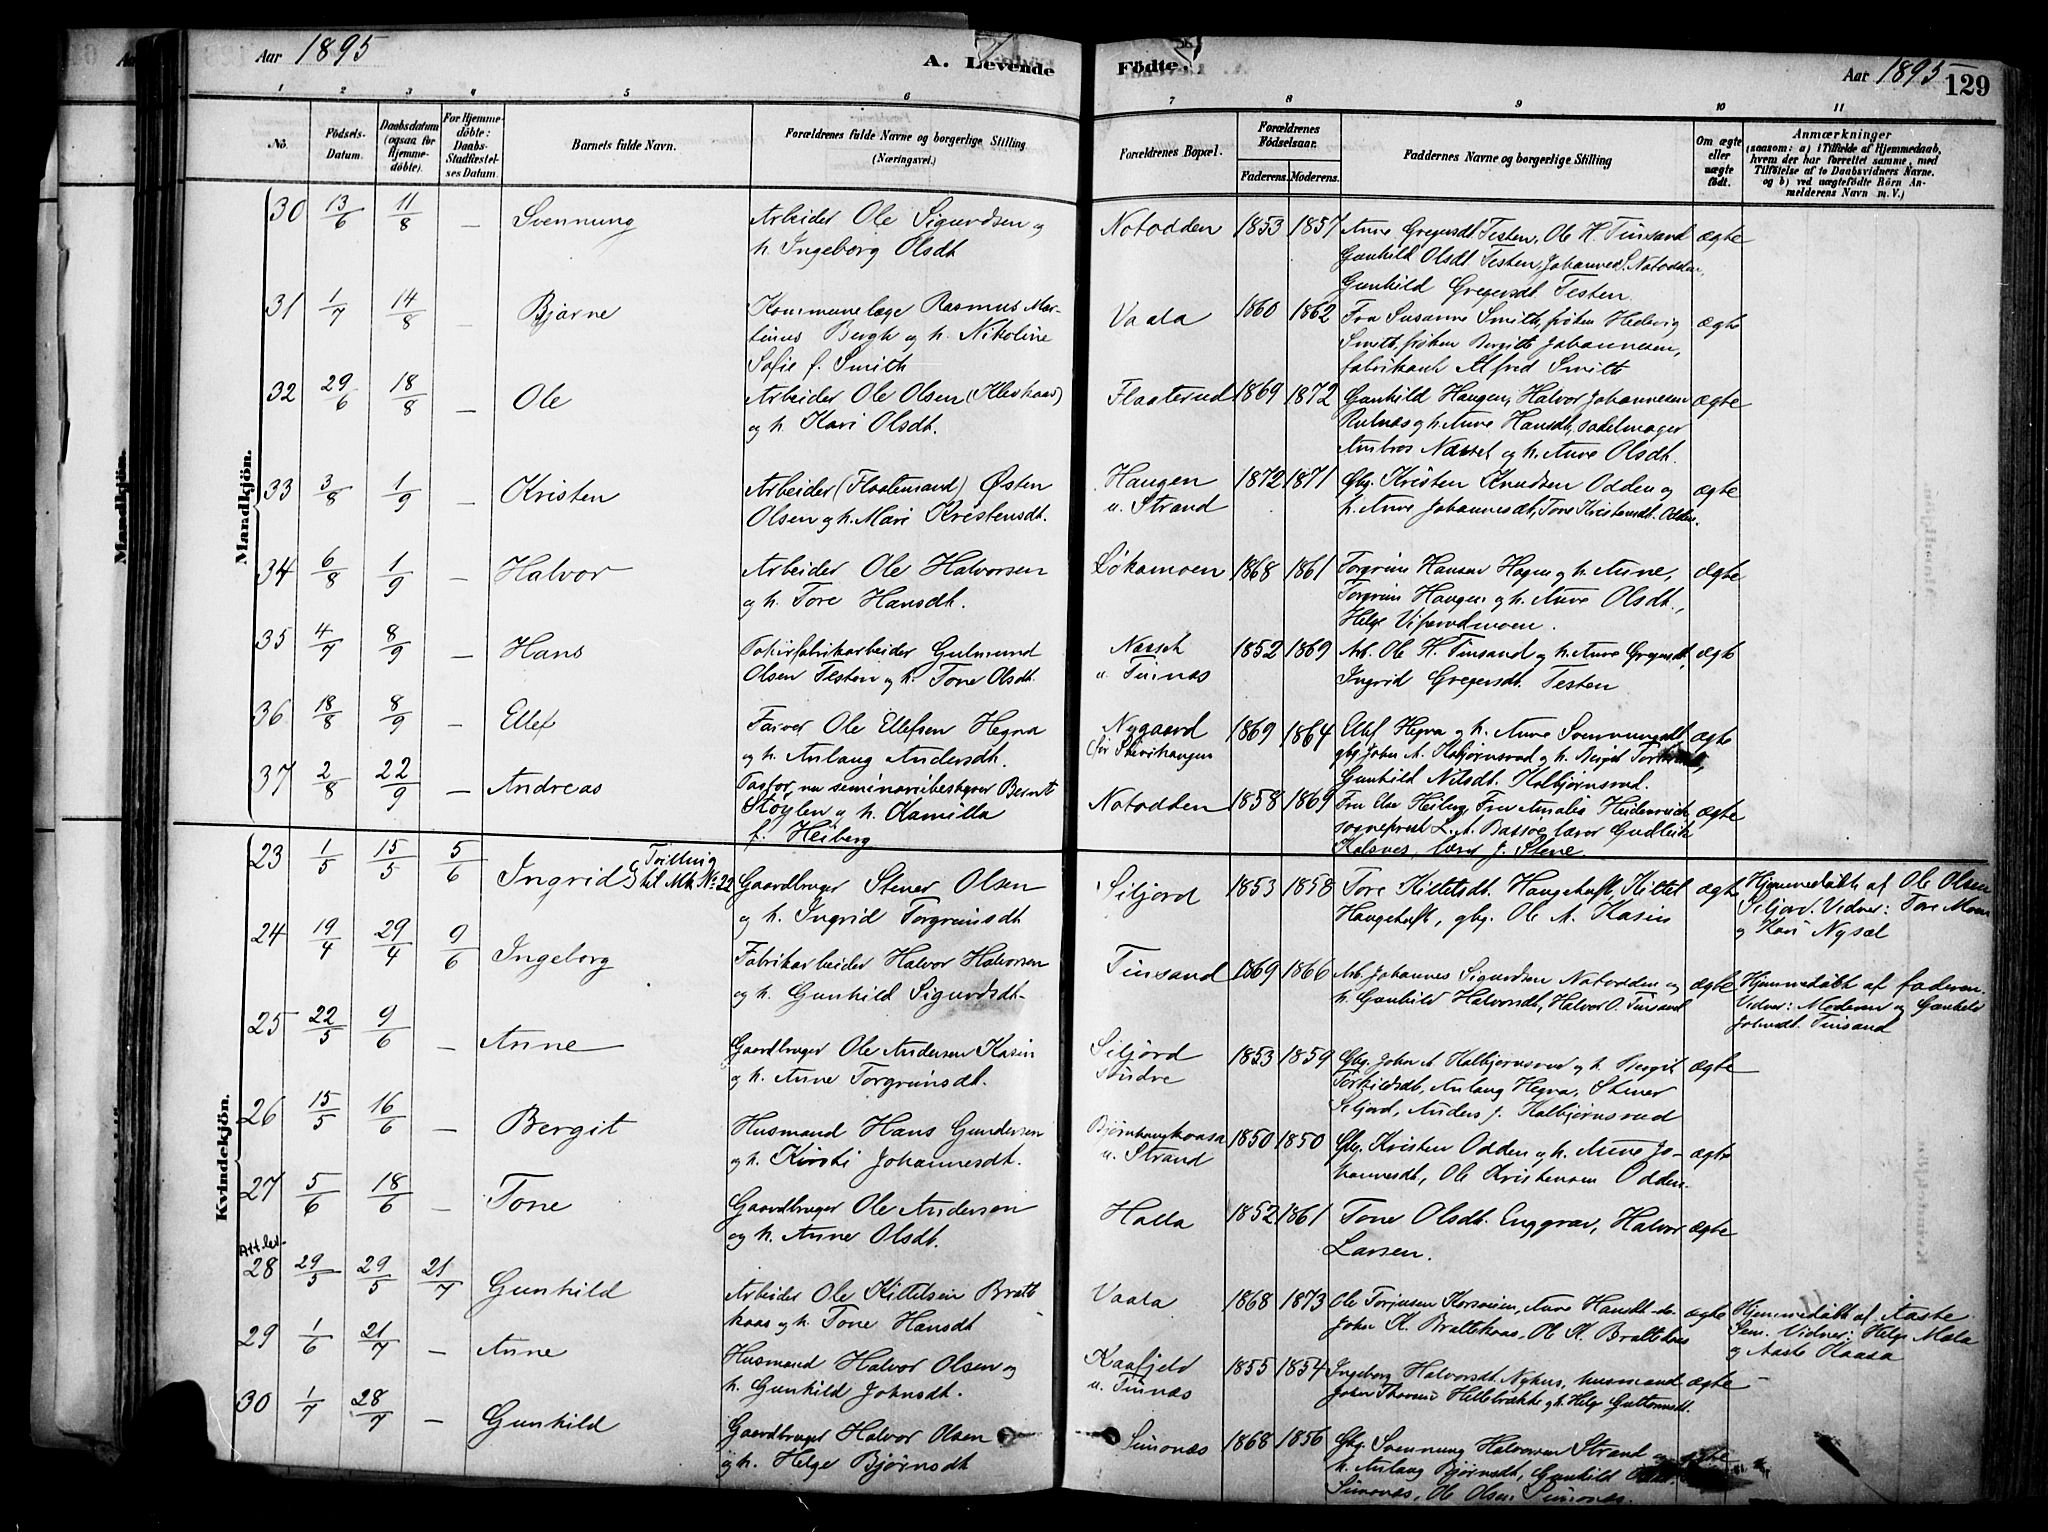 Aar 1895
A. Levende
Födte.
Aar 1895
129
1 2 3 4 5 6 7 8 9 10 11
No.
Födsels-
Datum.
Daabsdatum
(ogsaa for
Hjemme-
döbte).
For Hjemme-
döbte:
Daabs-
Stadfæstel-
ses Datum.
Barnets fulde Navn.
Forældrenes fulde Navne og borgerlige Stilling
(Næringsvei.)
Forældrenes Bopæl.
Forældrenes
Födselsaar.
Faderens. Moderens.
Faddernes Navne og borgerlige Stilling
Om ægte
eller
uægte
födt.
Anmærkninger
(saasom: a) i Tilfælde af Hjemmedaab,
hvem der har forrettet samme, med
Tilföielse af to Daabsvidners Navne.
og b) ved uægtefödte Börn An-
melderens Navn m. V.)
Mandkjön.
30 13/6 11/8 — Svennung
Arbeider Ole Sigurdsen og
h. Ingeborg Olsdt
Notodden 1853 1857
Anne Gregersdt Testen, Ole H. Tinsand
Gunhild Olsdt Testen, Johannes S. Notodden,
Gunhild Gregersdt. Testen.
ægte
31 1/7 14/8 — Bjarne
Kommunelæge Rasmus Mar-
tinus Bergh og h. Nikoline
Sofie f. Smith
Vaala 1860 1862
Fru Susanne Smith, frøken Hedevig
Smith, frøken Bergitte Johannesen,
fabrikant Alfred Smith
ægte
32 29/6 18/8 — Ole
Arbeider Ole Olsen (Klevkaas)
og h. Kari Olsdt.
Flaaterud 1869 1872
Gunhild Haugen, Halvor Johannesen
Rulnæs og h. Anne Hansdt, sadelmager
Ambros Næsset og h. Anne Olsdt.
ægte
33 3/8 1/9 — Kristen
Arbeider (Flaatemand) Østen
Olsen og h. Mari Kristensdt.
Haugen
u. Strand
1872 1871
Gbg. Kristen Knudsen Odden og
h. Anne Johannesdt, Tone Kristensdt. Odden.
ægte
34 6/8 1/9 — Halvor
Arbeider Ole Halvorsen
og h. Tore Hansdt.
Løkamoen 1868 1861
Torgrim Hansen Hagen og h. Anne,
Torgrim Haugen og h. Anne Olsdt.,
Helge Vipeødmoen.
ægte
35 4/7 8/9 — Hans
Papirfabrikarbeider Gulmund
Olsen Testen og h. Tone Olsdt.
Næsset
u. Tinnæs
1852 1869
Arb. Ole H. Tinsand og h. Anne Gregersdt,
Ingrid Gregersdt. Testen
ægte
36 18/8 8/9 — Ellef
Farver Ole Ellefsen Hegna
og h. Anlaug Andersdt.
Nygaard
1869 1864
Ellef Hegna og h. Anne Svennungsdt
gbg. John A. Kolbjørnsrud og h. Bergit
Gunhild Nilsdt. Kolbjørnsrud.
ægte
37 2/8 22/9 — Andreas
Pastor, nu seminariebestyrer Bernt
Støylen og h. Kamilla
f. Heiberg
Notodden 1858 1869
Fru Elise Heiberg, Fru Amalia Heidenreich
sogneprest L. A. Bassøe, lærer Gudleik
Kolsnes, lærer J. Stene.
ægte
Kvindekjön.
23 1/5 15/5 5/6 Ingrid
Tvilling
til Mk. No 22
Gaardbruger Stener Olsen
og h. Ingrid Torgrimsdt
Siljord 1853 1858
Tore Kittilsdt. Haugetuft, Kittel
Haugetuft, gbg. Ole A. Kasin
ægte
Hjemmedøbt af Ole Olsen
Siljord. Vidner: Tore Moen
og Kari Nysæl
24 19/4 29/4 9/6 Ingeborg
Fabrikarbeider Halvor Halvorsen
og h. Gunhild Sigurdsdt.
Tinsand 1869 1866
Arb. Johannes Sigurdsen Notodden og
h. Gunhild Halvorsdt, Halvor O. Tinsand
ægte
Hjemmedøbt af faderen.
Vidner: Moderen og Gunhild
Johnsdt. Tinsand
25 22/5 9/6 — Anne
Gaardbruger Ole Andersen Kasin
og h. Anne Torgrimsdt.
Siljord
søndre
1853 1859
Gbg. John A. Kolbjørnsrud og h. Bergit
Torkildsdt, Anlaug Hegna, Stener
Siljord, Anders J. Kolbjørnsrud
ægte
26 15/5 16/6 — Bergit
Husmand Hans Gundersen
og h. Kirsti Johannesdt.
Bjørnhaugkaasa
u. Strand
1850 1850
Gbg. Kristen Odden og h. Anne Jo-
hannesdt, Ole Kristensen Odden.
ægte
27 5/6 18/6 — Tone
Gaardbruger Ole Andersen
og h. Anne Olsdt.
Halla 1852 1861
Tone Olsdt. Enggrav, Halvor
Larsen.
ægte
Att.lev.
28 29/5 29/5 21/7 Gunhild
Arbeider Ole Kittilsen Bratt-
kaas og h. Tone Hansdt
Vaala 1868 1873
Ole Torjusen Korsveien, Anne Hansdt do
John K. Brattekaas, Ole K. Brattekaas
ægte
Hjemmedøbt af Aaste
Sem. Vidner: Helge Mæla
og Aaste Kaasa
29 1/6 21/7 — Anne
Husmand Halvor Olsen og
h. Gunhild Johnsdt.
Kaafjeld
u. Tinnæs
1855 1854
Ingeborg Halvorsdt Nyhus, husmand
John Hellebrække og h. Helge Guttormsdt.
ægte
30 1/7 28/7 — Gunhild
Gaardbruger Halvor Olsen
og h. Helge Bjørnsdt
Simonæs 1868 1856
Gbg. Svennung Halvorsen Strand og
h. Anlaug Bjørnsdt, Gunhild
Simonæs, Ole Olsen Simonæs.
ægte